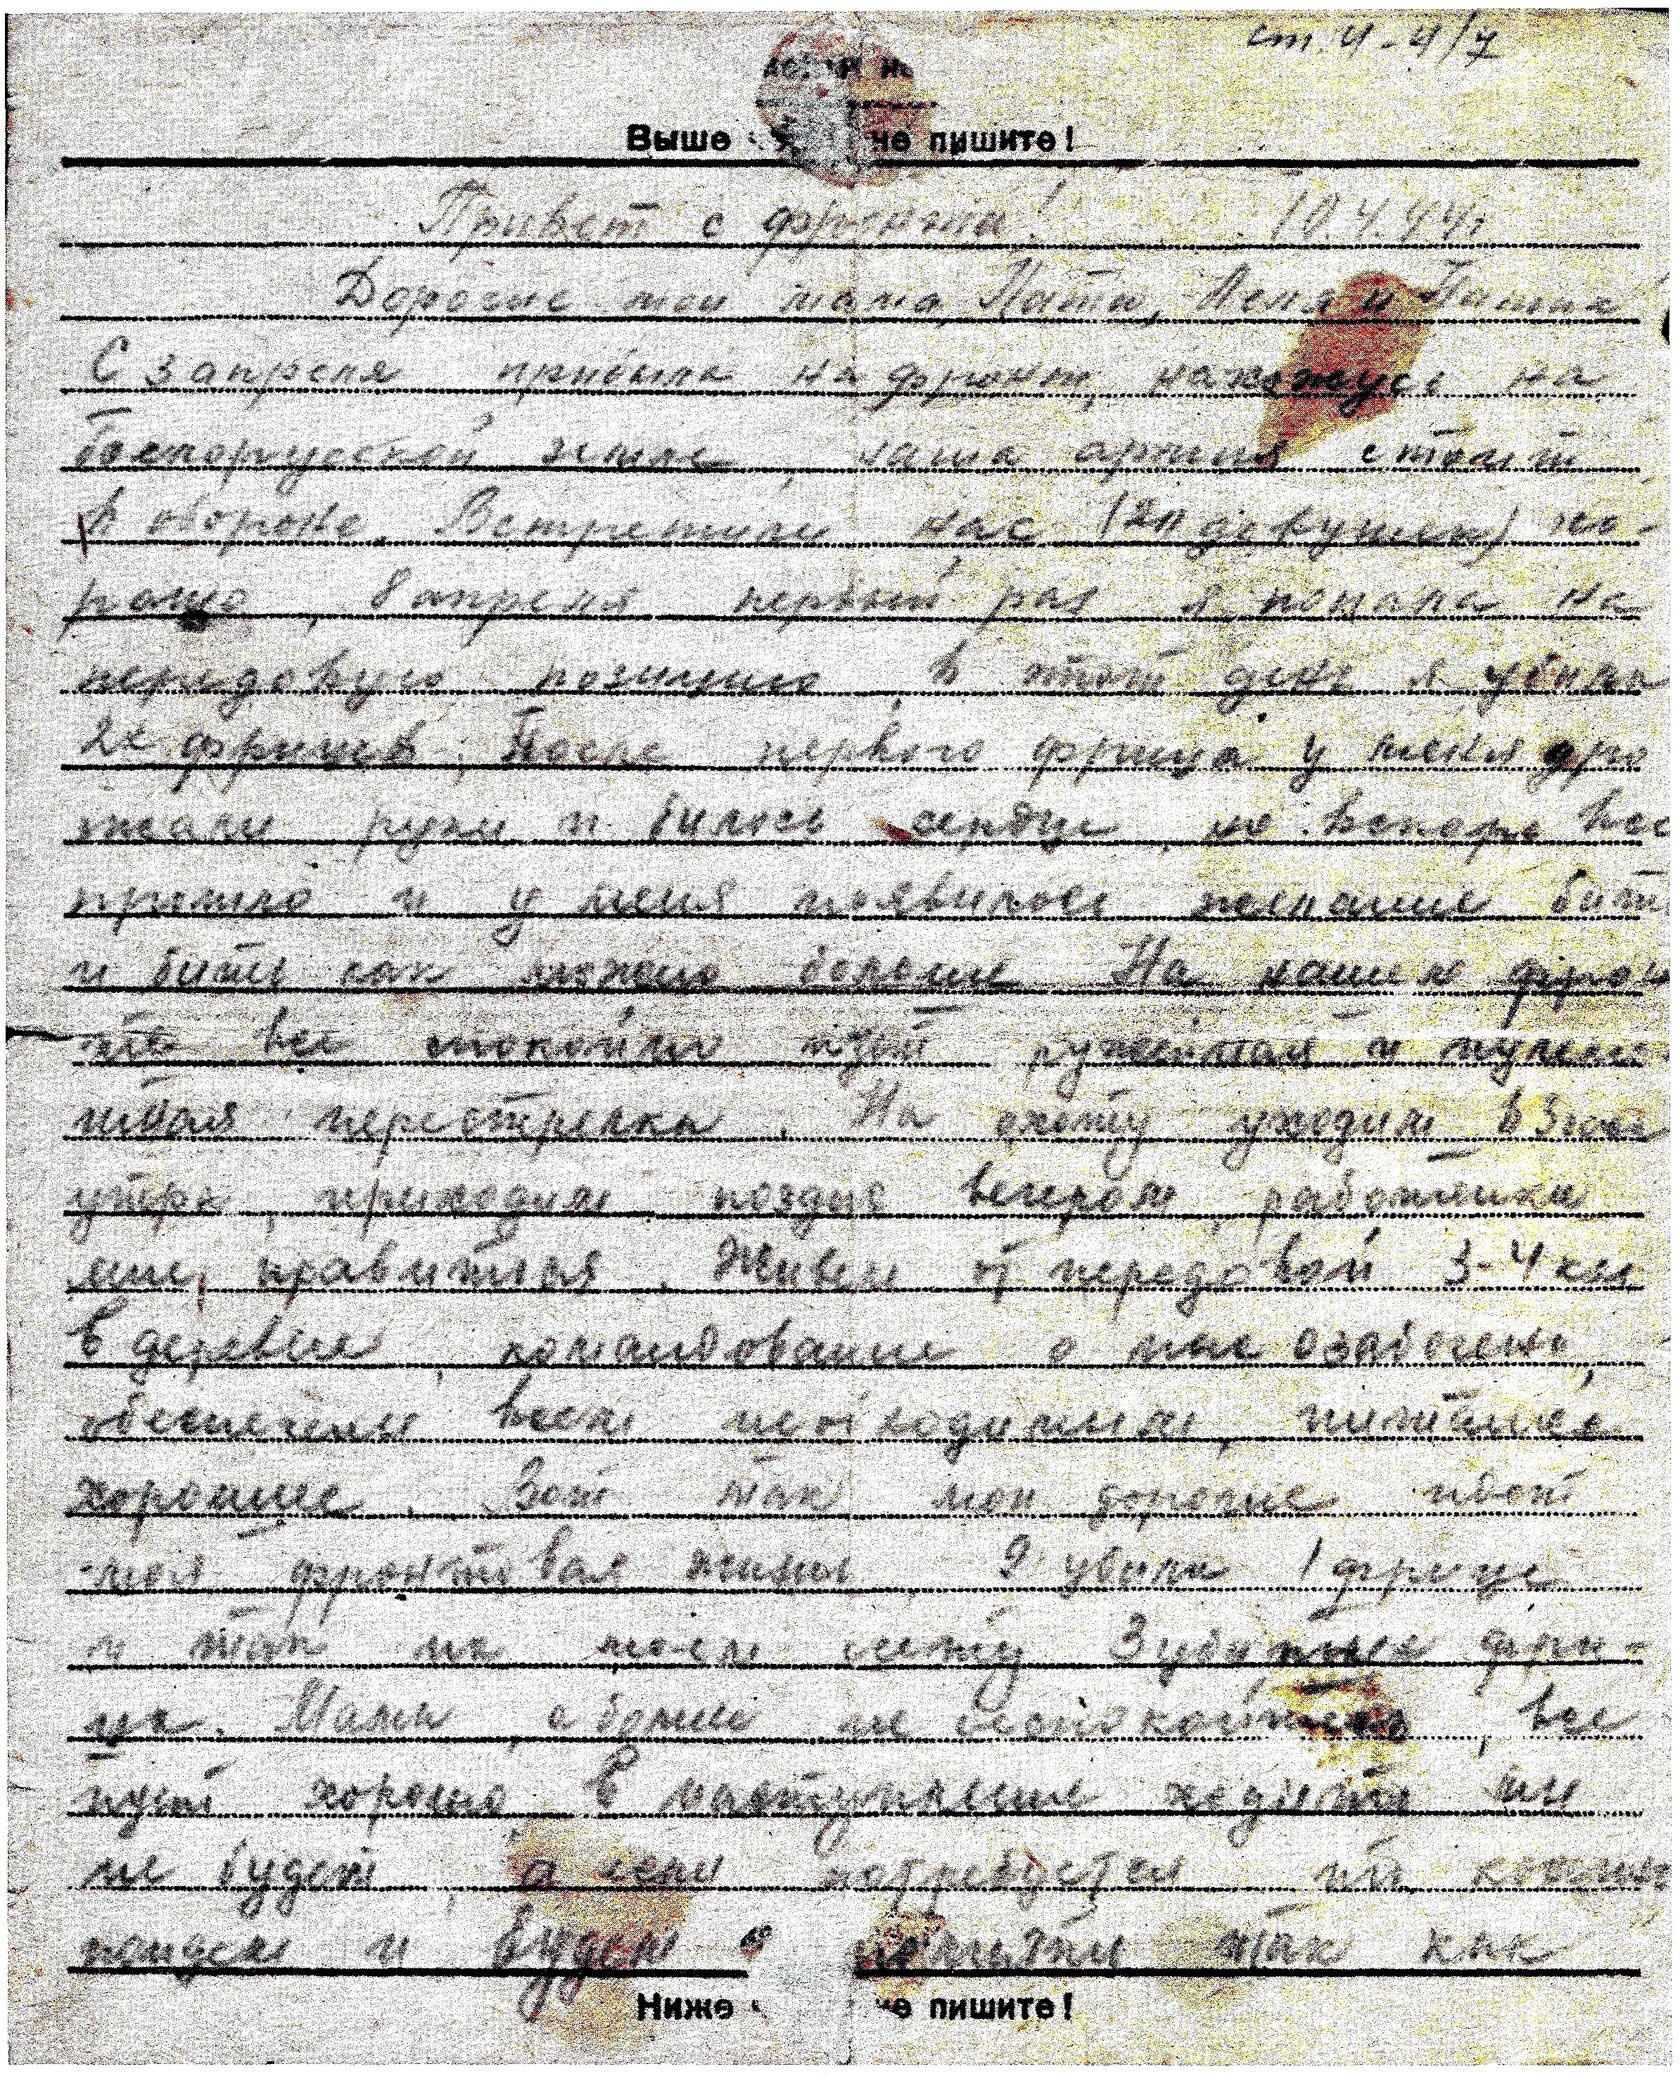 ст. 4-4/7
Выше не пишите!
Привет с фронта! 10.4.44г
Дорогие мои мама, Паты, Леля и
С 3 апреля прибыла на фронт, нахожусь на
белорусской земле, наша армия стоит
в обороне. Встретили нас (20 девушек) хо-
рошо, 8 апреля первый раз я попала на
передовую позицию, в этот день я убила
2х фрицев. После первого фрица у меня дро
жали руки и билось сердце, но вскоре все
прошло и у меня появилось желание бить
и бить как можно больше. На нашем фрон
те все спокойно идет ружейная и пулеме
тная перестрелка. На охоту уходим в 3 часа
утра, приходим поздно вечером, работенка
мне, нравится. Живем от передовой 3-4 км
в деревне, командование о нас озабочено,
обеспечены всем необходимым, питание
хорошее. Вот так мои дорогие идет
моя фронтовая жизнь. 9 убила 1 фрица
и так на моем счету 3 убитых фри-
ца. Мама, обо мне не беспокойтесь, все
идет хорошо в наступление ходить мы
не будем, а если потребуется то конечно
пойдем и будем так как
Ниже не пишите!